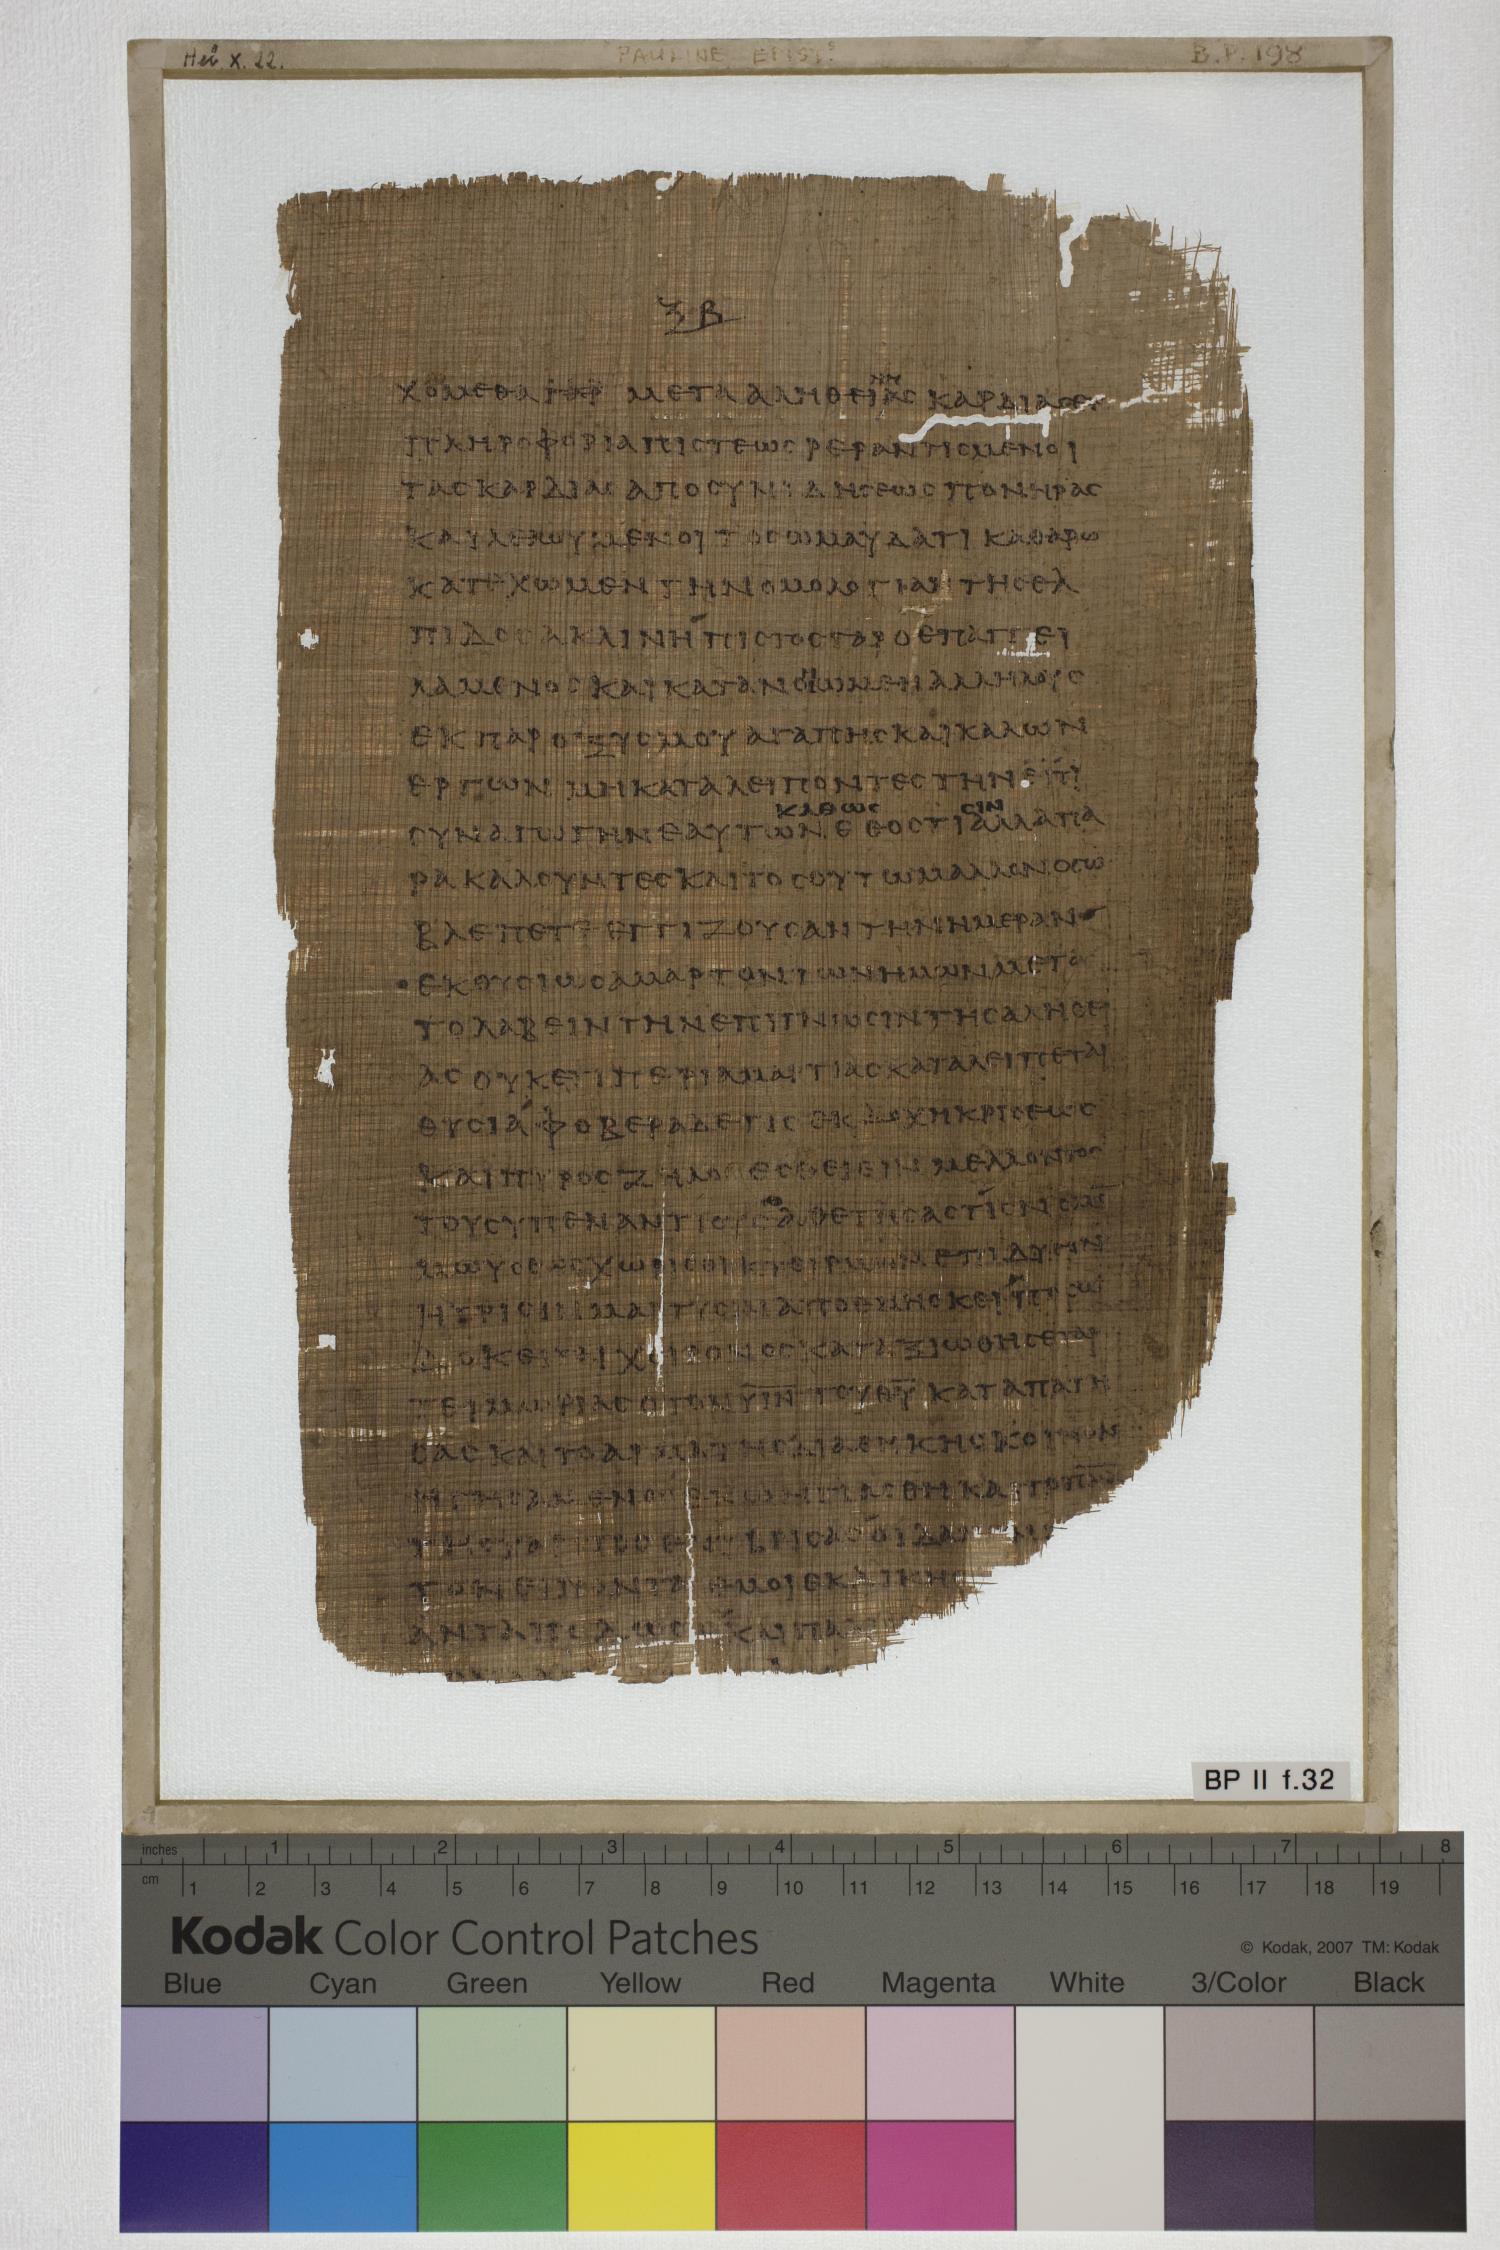 Heb. X. 22.
PAULINE EPIST.ˢ
B.P. 198
ΞΒ
ΧΟΜΕΘΑ ΜΕΤΑ ΑΛΗΘΕΙΝΗΑΣ ΚΑΡΔΙΑΣ ΕΝ
ΠΛΗΡΟΦΟΡΙΑ ΠΙΣΤΕΩΣ ΡΕΡΑΝΤΙΣΜΕΝΟΙ
ΤΑΣ ΚΑΡΔΙΑΣ ΑΠΟ ΣΥΝΙΔΗΣΕΩΣ ΠΟΝΗΡΑΣ
ΚΑΙ ΛΕΛΟΥΜΕΝΟΙ ΤΟ ΣΩΜΑ ΥΔΑΤΙ ΚΑΘΑΡΩ
ΚΑΤΕΧΩΜΕΝ ΤΗΝ ΟΜΟΛΟΓΙΑΝ ΤΗΣ ΕΛ
ΠΙΔΟΣ ΑΚΛΙΝΗ ΠΙΣΤΟΣ ΓΑΡ Ο ΕΠΑΓΓΕΙ
ΛΑΜΕΝΟΣ ΚΑΙ ΚΑΤΑΝΟΩΜΕΝ ΑΛΛΗΛΟΥΣ
ΕΚ ΠΑΡΟΞΥΣΜΟΥ ΑΓΑΠΗΣ ΚΑΙ ΚΑΛΩΝ
ΕΡΓΩΝ ΜΗ ΚΑΤΑΛΕΙΠΟΝΤΕΣ ΤΗΝ ΕΠΙ
ΚΑΘΩΣ ΣΙΝ
ΣΥΝΑΓΩΓΗΝ ΕΑΥΤΩΝ Ε ΕΘΟΣ ΤΙ ΑΛΛΑ ΠΑ
ΡΑΚΑΛΟΥΝΤΕΣ ΚΑΙ ΤΟΣΟΥΤΩ ΜΑΛΛΟΝ ΟΣΩ
ΒΛΕΠΕΤΕ ΕΓΓΙΖΟΥΣΑΝ ΤΗΝ ΗΜΕΡΑΝ
ΕΚΟΥΣΙΩΣ ΑΜΑΡΤΟΝΤΩΝ ΗΜΩΝ ΜΕΤΑ
ΤΟ ΛΑΒΕΙΝ ΤΗΝ ΕΠΙΓΝΩΣΙΝ ΤΗΣ ΑΛΗΘΕΙ
ΑΣ ΟΥΚΕΤΙ ΠΕΡΙ ΑΜΑΡΤΙΑΣ ΚΑΤΑΛΕΙΠΕΤΑΙ
ΘΥΣΙΑ ΦΟΒΕΡΑ ΔΕ ΤΙΣ ΕΚΔΟΧΗ ΚΡΙΣΕΩΣ
ΚΑΙ ΠΥΡΟΣ ΖΗΛΟΣ ΕΣΘΕΙΕΙΝ ΜΕΛΛΟΝΤΟΣ
ΤΟΥΣ ΥΠΕΝΑΝΤΙΟΥΣ ΑΘΕΤΗΣΑΣ ΤΙΣ ΝΟΜΟΝ
ΜΩΥΣΕΩΣ ΧΩΡΙΣ ΟΙΚΤΕΙΡΜΩΝ ΕΠΙ ΔΥΣΙΝ
Η ΤΡΙΣΙΝ ΜΑΡΤΥΣΙΝ ΑΠΟΘΝΗΣΚΕΙ ΠΟΣΩ
ΔΟΚΕΙΤΑΙ ΧΕΙΡΟΝΟΣ ΚΑΤΑΞΙΩΘΗΣΕΤΑΙ
ΤΕΙΜΩΡΙΑΣ Ο ΤΟΝ ΥΙΝ ΤΟΥ ΘΥ ΚΑΤΑΠΑΤΗ
ΣΑΣ ΚΑΙ ΤΟ ΑΙΜΑ ΤΗΣ ΔΙΑΘΗΚΗΣ ΚΟΙΝΟΝ
ΗΓΗΣΑΜΕΝΟΣ ΕΝ Ω ΗΓΙΑΣΘΗ ΚΑΙ ΤΟ ΠΝΑ
ΤΗΣ ΧΑΡΙΤΟΣ ΕΝΥΒΡΙΣΑΣ ΟΙΔΑΜΕΝ
ΤΟΝ ΕΙΠΟΝΤΑ ΕΜΟΙ ΕΚΔΙΚΗΣ
ΑΝΤΑΠΟΔΩΣΩ ΚΑΙ ΠΑ
BP II f.32
inches 1 2 3 4 5 6 7 8
cm 1 2 3 4 5 6 7 8 9 10 11 12 13 14 15 16 17 18 19
Kodak Color Control Patches
© Kodak, 2007 TM: Kodak
Blue Cyan Green Yellow Red Magenta White 3/Color Black